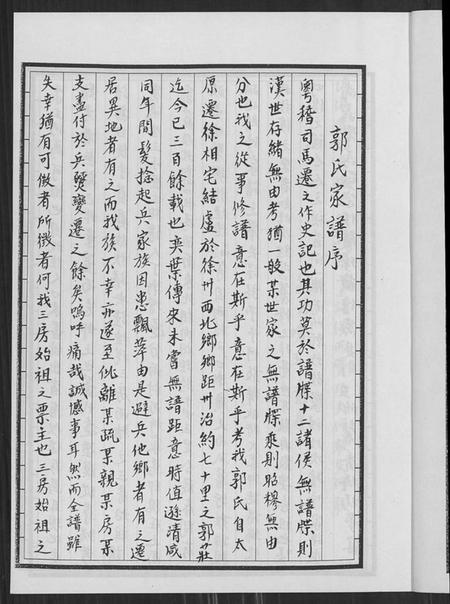 郭氏家譜序
粵稽司馬遷之作史記也其功莫於譜牒十二諸侯無譜牒則
漢世存緒無由考猶一般某世家之無譜牒乘則昭穆無由
分也我之從事修譜意在斯乎意在斯乎考我郭氏自太
原遷徐相宅結廬於徐州西北鄉鄉距州治約七十里之郭莊
迄今已三百餘載也奕葉傳來未嘗無譜距意時值遜清咸
同年間髮捻起兵家族因患飄萍由是避兵他鄉者有之遷
居異地者有之而我族不幸亦遂至仳離某疏某親某房某
支盡付於兵燹變遷之餘矣嗚呼痛哉誠憾事耳然而全譜雖
失幸猶有可徵者所徵者何我三房始祖之票主也三房始祖之